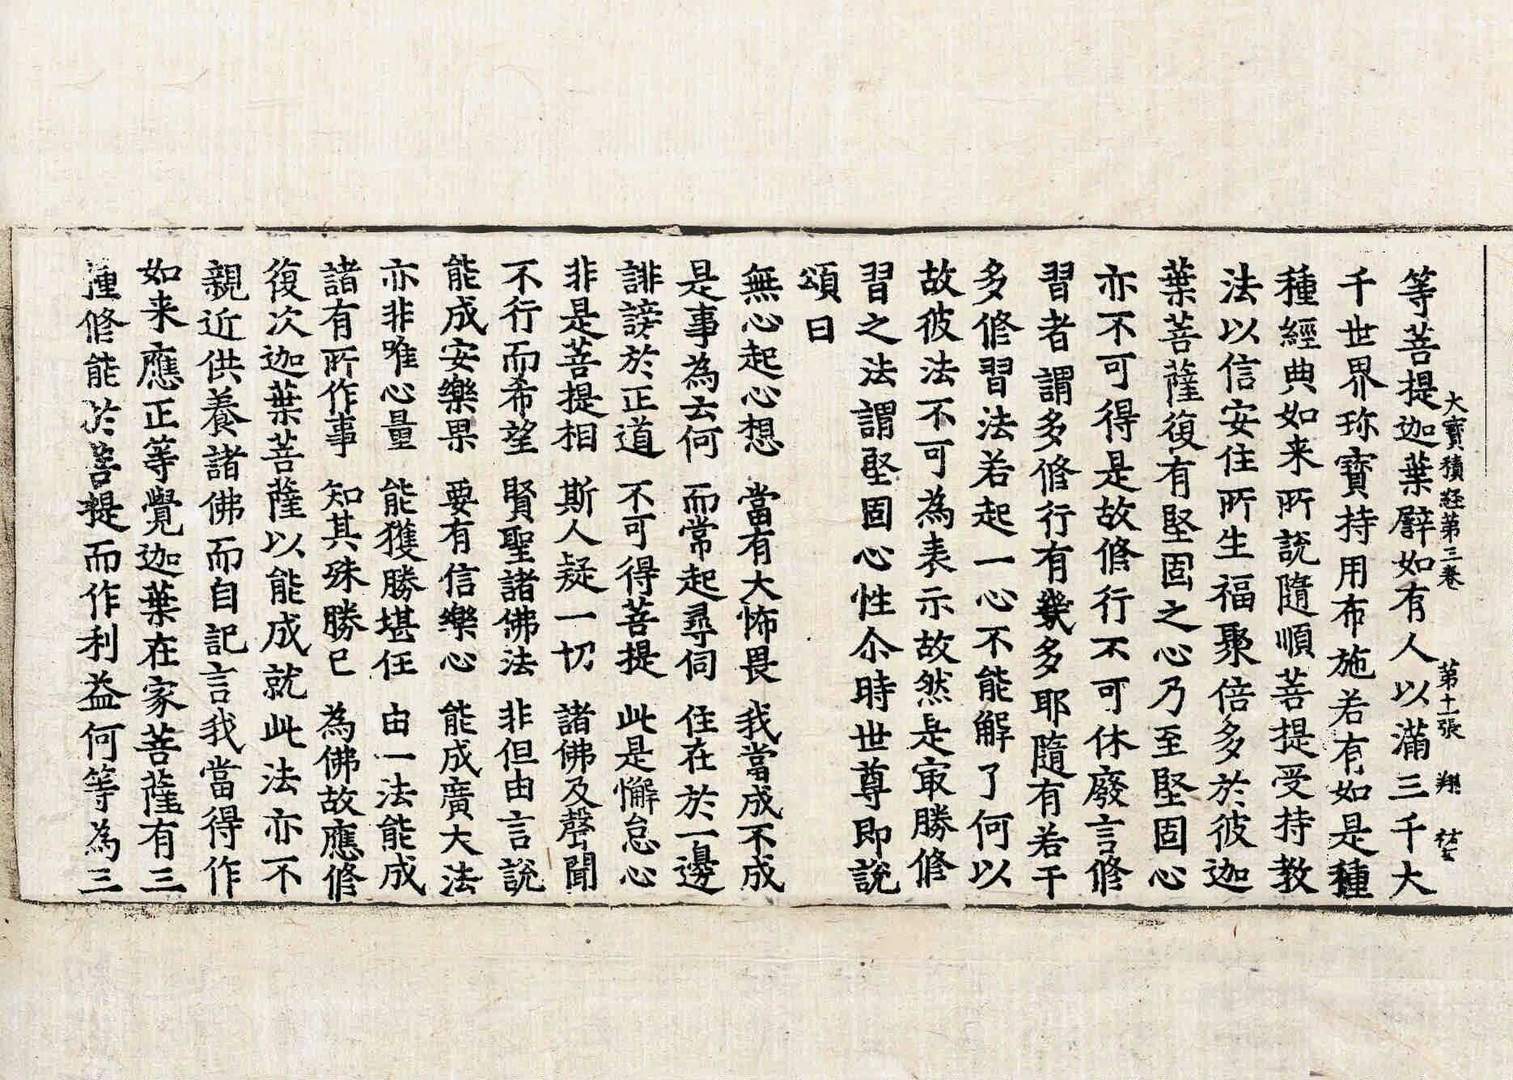 大寶積経第三卷 第十一張 翔
等菩提迦葉譬如有人以滿三千大
千世界珎寶持用布施若有如是種
種經典如来所說隨順菩提受持教
法以信安住所生福聚倍多於彼迦
葉菩薩復有堅固之心乃至堅固心
亦不可得是故修行不可休廢言修
習者謂多修行有幾多耶隨有若干
多修習法若起一心不能解了何以
故彼法不可為表示故然是㝡勝修
習之法謂堅固心性尒時世尊即說
頌曰
無心起心想 當有大怖畏 我當成不成
是事為云何 而常起尋伺 住在於一邊
誹謗於正道 不可得菩提 此是懈怠心
非是菩提相 斯人疑一切 諸佛及聲聞
不行而希望 賢聖諸佛法 非但由言說
能成安樂果 要有信樂心 能成廣大法
亦非唯心量 能獲勝堪任 由一法能成
諸有所作事 知其殊勝已 為佛故應修
復次迦葉菩薩以能成就此法亦不
親近供養諸佛而自記言我當得作
如来應正等覺迦葉在家菩薩有三
種修能於菩提而作利益何等為三